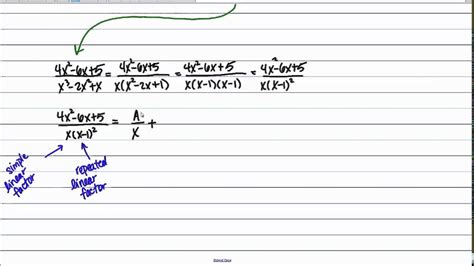 4x²-6x+5 / x³-2x²+x = 4x²-6x+5 / x(x²-2x+1) = 4x²-6x+5 / x(x-1)(x-1) = 4x²-6x+5 / x(x-1)²
4x²-6x+5 / x(x-1)² = A / x +
simple linear factor
repeated linear factor